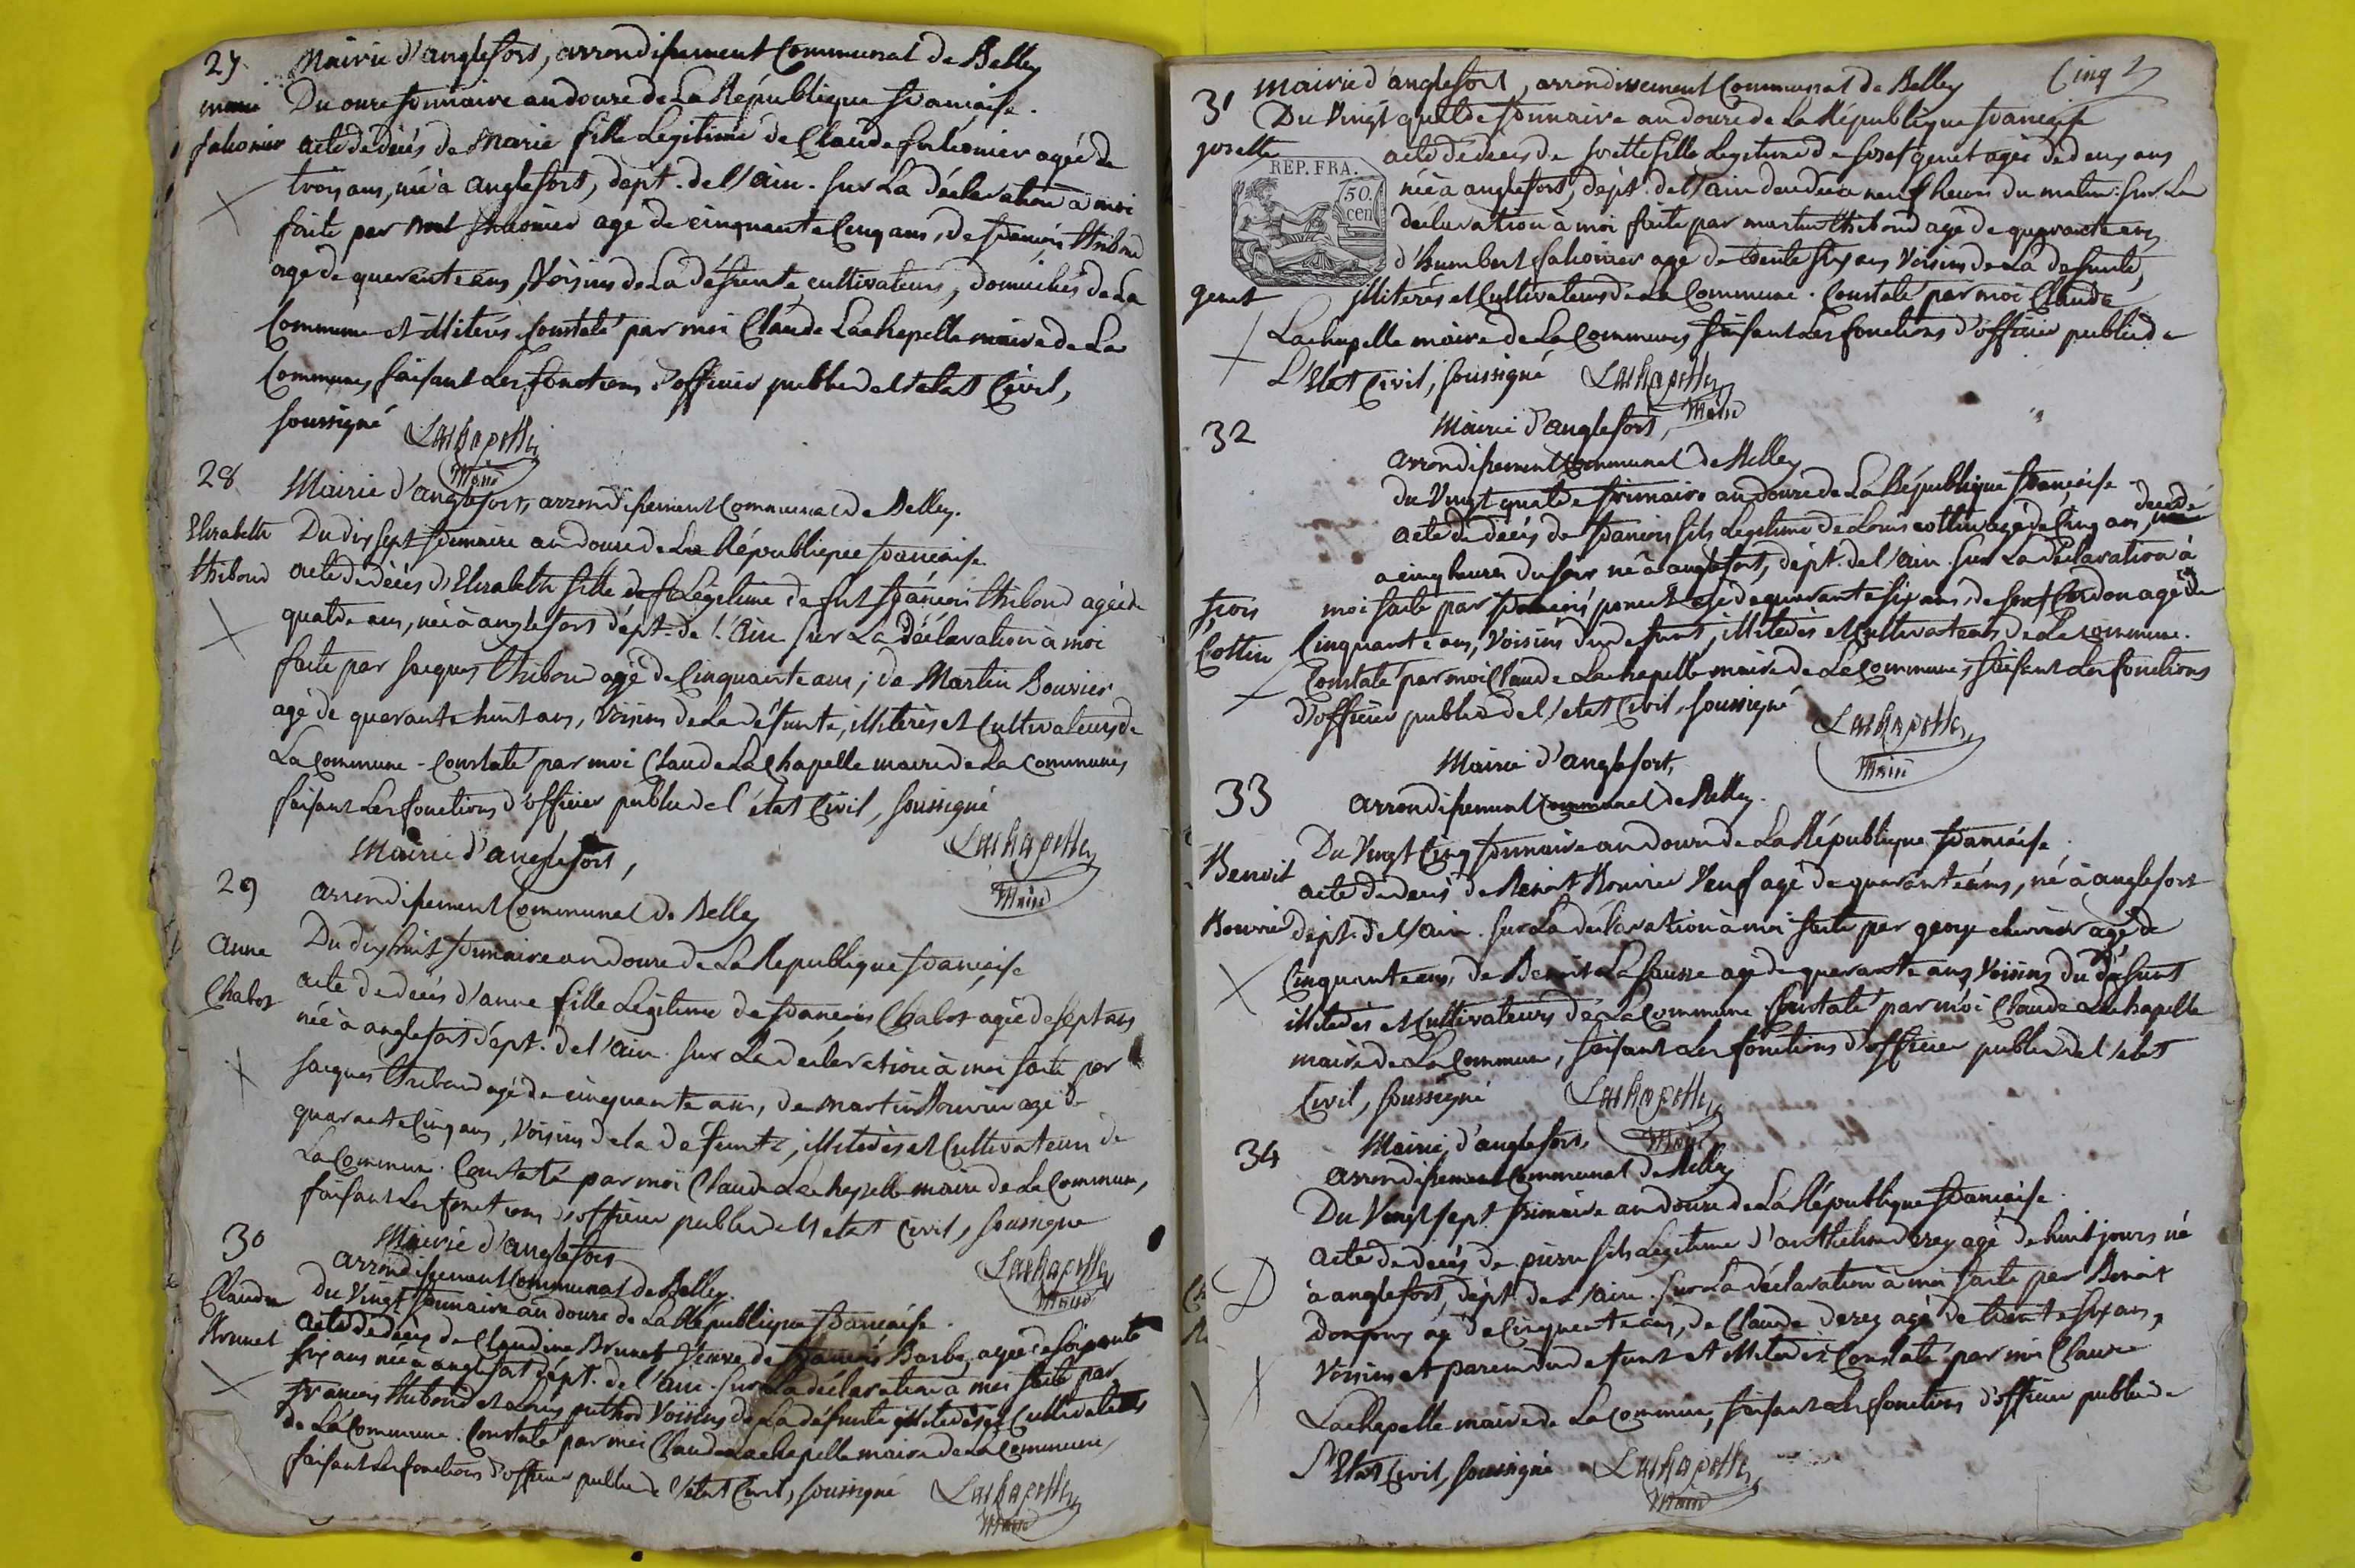 27 Mairie d'anglefort, arrondissement Communal de Belley
marie Du onze frimaire an douze de La République francaise.
falconier acte de décès de Marie fille Legitime de Claude falconier agée de
trois ans, née à anglefort, dépt. de l'ain. sur La déclaration à moi
faite par falconier agé de cinquante cinq ans, de francois thiboud
agé de quarente ans, Voisins de La défunte, cultivateurs, domiciliés de La
Commune et illiterés. Constaté par moi Claude Lachapelle maire de La
Commune, faisant Les fonctions d'officier public de l'etat Civil,
soussigné Lachapelle
Maire
28 Mairie d'anglefort, arrondissement Communal de Belley.
Elizabeth Du dix sept frimaire an douze de La République francaise
thiboud acte de décès d'Elizabeth fille Légitime de fut francois thiboud agée de
quatre ans, née à anglefort dépt. de l'ain sur La déclaration à moi
faite par Jacques thiboud agé de Cinquante ans; de Martin Bouvier
agé de quarante huit ans, Voisins de La défunte, illiterés et Cultivateurs de
La Commune - Constaté par moi Claude Lachapelle maire de La Commune,
faisant Les fonctions d'officier public de l'état Civil, soussigné
Lachapelle
Maire
Mairie d'anglefort,
29 arrondissement Communal de Belley
anne Du dix huit frimaire an douze de La Republique francaise
Chabot acte de decès d'anne fille Légitime de francois Chabot agée de sept ans
née à anglefort dépt. de l'ain. sur La declaration à moi faite par
Jacques thiboud agé de cinquante ans, de martin Bouvier agé de
quarante Cinq ans, Voisins de la défunte, illiterés et Cultivateurs de
La Commune. Constaté par moi Claude Lachapelle maire de La Commune,
faisant Les fonctions d'officier public de l'etat Civil, soussigné
Lachapelle
Maire
30 Mairie d'anglefort
arrondissement Communal de Belley.
Claudine du Vingt frimaire an douze de La République francaise.
Brunet acte de décès de Claudine Brunet Veuve de francois Barbe, agée de soixante
six ans née à anglefort dépt. de l'ain. sur La déclaration à moi faite par
francois thiboud et Louis Voisins de La défunte illiterés et Cultivateurs
de La Commune. Constaté par moi Claude Lachapelle maire de La Commune,
faisant Les fonctions d'officier public de l'etat Civil, soussigné Lachapelle
Maire
Cinq
31 mairie d'anglefort, arrondissement Communal de Belley
Du Vingt quatre frimaire an douze de La République francaise
josette acte de décès de josette fille Legitime de josef genet agée de deux ans
REP. FRA.
50. cen.
née à anglefort, dépt. de l'ain decédée à neuf heures du matin. sur La
déclaration à moi faite par martin thiboud agé de quarante ans
d'humbert falconier agé de trente six ans Voisins de La defunte,
genet illiterés et Cultivateurs de La Commune. Constaté par moi Claude
Lachapelle maire de La Commune, faisant Les fonctions d'officier public de
L'Etat Civil, soussigné Lachapelle
Maire
32 Mairie d'anglefort,
arrondissement Communal de Belley
du Vingt quatre frimaire an douze de La République francaise
acte de décès de francois fils Légitime de Louis cottin agé de Cinq ans, decédé
a cinq heures du soir né à anglefort, dépt. de l'ain. sur La declaration à
fcois moi faite par francois agé de quarante six ans, de agé de
Cottin Cinquante ans, Voisins du defunt, illiterés et Cultivateurs de La commune.
Constaté par moi Claude Lachapelle maire de La Commune, faisant Les fonctions
d'officier public de l'etat Civil, soussigné Lachapelle
Maire
Mairie d'anglefort,
33 arrondissement Communal de Belley.
Du Vingt Cinq frimaire an douze de La République francaise.
Benoit acte de décès de Benoit Bouvier Veuf agé de quarante ans, né à anglefort
Bouvier dépt. de l'ain. sur La déclaration à moi faite par george agé de
Cinquante ans, de Benoit Lafausse agé de quarante ans, Voisins du défunt
illiterés et Cultivateurs de La Commune. Constaté par moi Claude Lachapelle
maire de La Commune, faisant Les fonctions d'officier public de l'etat
Civil, soussigné Lachapelle
Maire
34 Mairie d'anglefort,
arrondissement Communal de Belley
Du Vingt sept frimaire an douze de La République francaise.
acte de decès de pierre fils Légitime d'anthelme derez agé de huit jours né
à anglefort, dépt. de l'ain. sur La déclaration à moi faite par Benoit
agé de Cinquante ans, de Claude derez agé de trente six ans,
Voisins et parens du defunt et illiterés. Constaté par moi Claude
Lachapelle maire de La Commune, faisant Les fonctions d'officier public de
l'Etat Civil, soussigné Lachapelle
Maire